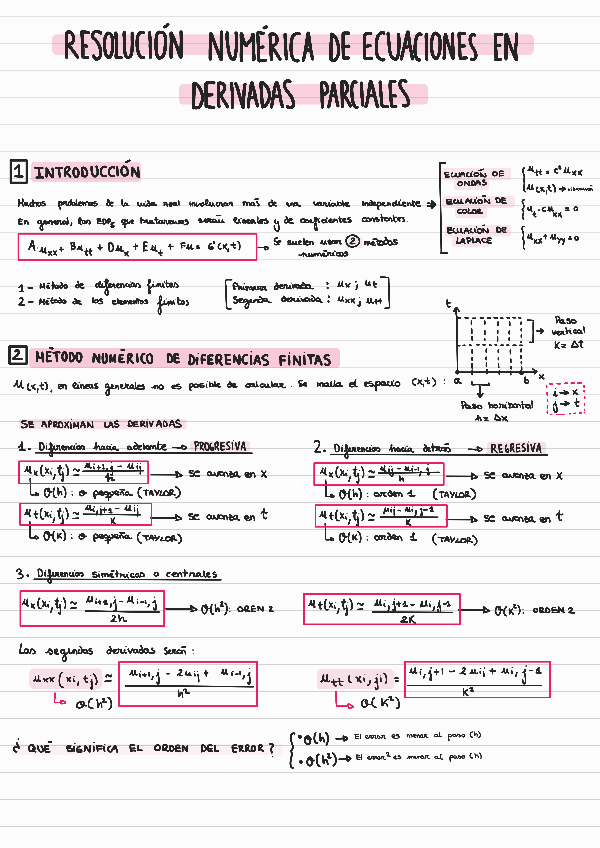 RESOLUCIÓN NUMÉRICA DE ECUACIONES EN
DERIVADAS PARCIALES
1 INTRODUCCIÓN
Muchos problemas de la vida real involucran más de una variable independiente →
En general, las EDPs que trataremos serán lineales y de coeficientes constantes.
ECUACIÓN DE ONDAS { u_tt = c² u_xx
u(x,t) →
ECUACIÓN DE CALOR { u_t - c u_xx = 0
ECUACIÓN DE LAPLACE { u_xx + u_yy = 0
A u_xx + B u_tt + D u_x + E u_t + Fu = G(x,t) → Se suelen usar 2 métodos
numéricos
1 - Método de diferencias finitas
2 - Método de los elementos finitos
[Primera derivada : u_x ; u_t
Segunda derivada : u_xx ; u_tt]
2 MÉTODO NUMÉRICO DE DIFERENCIAS FINITAS
u(x,t), en líneas generales no es posible de calcular. Se malla el espacio (x,t) :
t
a b x
Paso vertical
K = Δt
Paso horizontal
h = Δx
i → x
j → t
SE APROXIMAN LAS DERIVADAS
1. Diferencias hacia adelante → PROGRESIVA
u_x(xi, tj) ≃ (u_i+1,j - u_ij)/h → se avanza en x
↳ O(h) : o pequeña (TAYLOR)
u_t(xi, tj) ≃ (u_i,j+1 - u_ij)/K → se avanza en t
↳ O(K) : o pequeña (TAYLOR)
2. Diferencias hacia detrás → REGRESIVA
u_x(xi, tj) ≃ (u_ij - u_i-1,j)/h → se avanza en x
↳ O(h) : orden 1 (TAYLOR)
u_t(xi, tj) ≃ (u_ij - u_i,j-1)/K → se avanza en t
↳ O(K) : orden 1 (TAYLOR)
3. Diferencias simétricas o centrales
u_x(xi, tj) ≃ (u_i+1,j - u_i-1,j)/2h → O(h²): OREN 2
u_t(xi, tj) ≃ (u_i,j+1 - u_i,j-1)/2K → O(K²): ORDEN 2
Las segundas derivadas serán :
u_xx(xi, tj) ≃ (u_i+1,j - 2u_ij + u_i-1,j)/h²
↳ O(h²)
u_tt(xi, ji) = (u_i,j+1 - 2u_ij + u_i,j-1)/K²
↳ O(K²)
¿ QUÉ SIGNIFICA EL ORDEN DEL ERROR ?
• O(h) → El error es menor al paso (h)
• O(h²) → El error² es menor al paso (h)